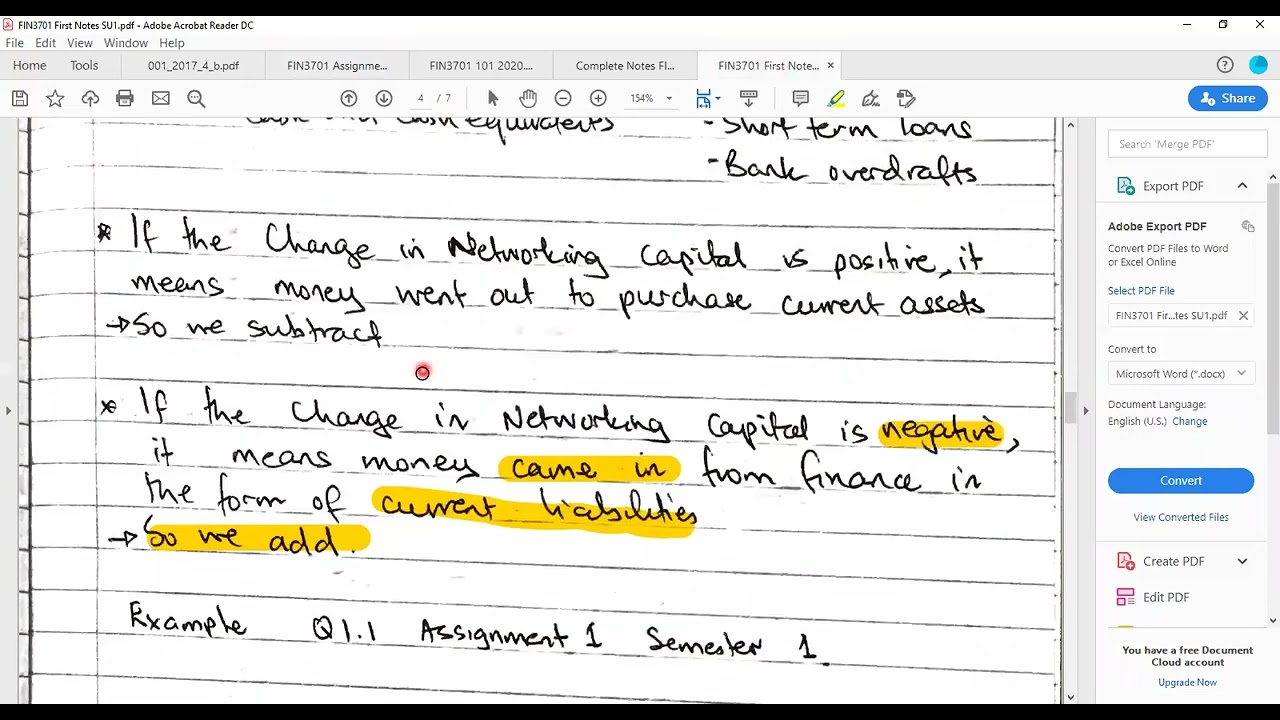 FIN3701 First Notes SU1.pdf - Adobe Acrobat Reader DC
File Edit View Window Help
Home Tools 001_2017_4_b.pdf FIN3701 Assignme... FIN3701 101 2020.... Complete Notes FI... FIN3701 First Note... ×
4 / 7 154% Share
Cash and Cash equivalents - Short term loans
- Bank overdrafts
* If the Change in Networking Capital is positive, it
means money went out to purchase current assets
→ So we subtract
* If the Change in Networking Capital is negative,
it means money came in from finance in
the form of current liabilities
→ So we add.
Example Q1.1 Assignment 1 Semester 1.
Search 'Merge PDF'
Export PDF
Adobe Export PDF
Convert PDF Files to Word
or Excel Online
Select PDF File
FIN3701 Fir...tes SU1.pdf ×
Convert to
Microsoft Word (*.docx)
Document Language:
English (U.S.) Change
Convert
View Converted Files
Create PDF
Edit PDF
You have a free Document
Cloud account
Upgrade Now